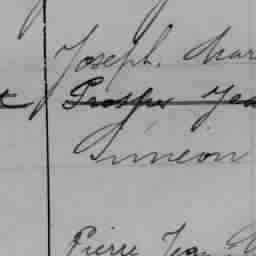 Joseph. Char
Prosper Jea
Siméon
Pierre Jean